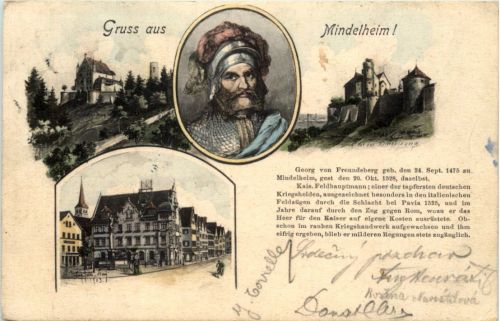 Gruss aus
Mindelheim!
Georg von Freundsberg geb. den 24. Sept. 1475 zu
Mindelheim, gest den 20. Okt. 1528, daselbst.
Kais. Feldhauptmann; einer der tapfersten deutschen
Kriegshelden, ausgezeichnet besonders in den italienischen
Feldzügen durch die Schlacht bei Pavia 1525, und im
Jahre darauf durch den Zug gegen Rom, wozu er das
Heer für den Kaiser auf eigene Kosten ausrüstete. Ob-
schon im rauhen Kriegshandwerk aufgewachsen und ihm
eifrig ergeben, blieb er milderen Regungen stets zugänglich.
Srdečný pozdrav